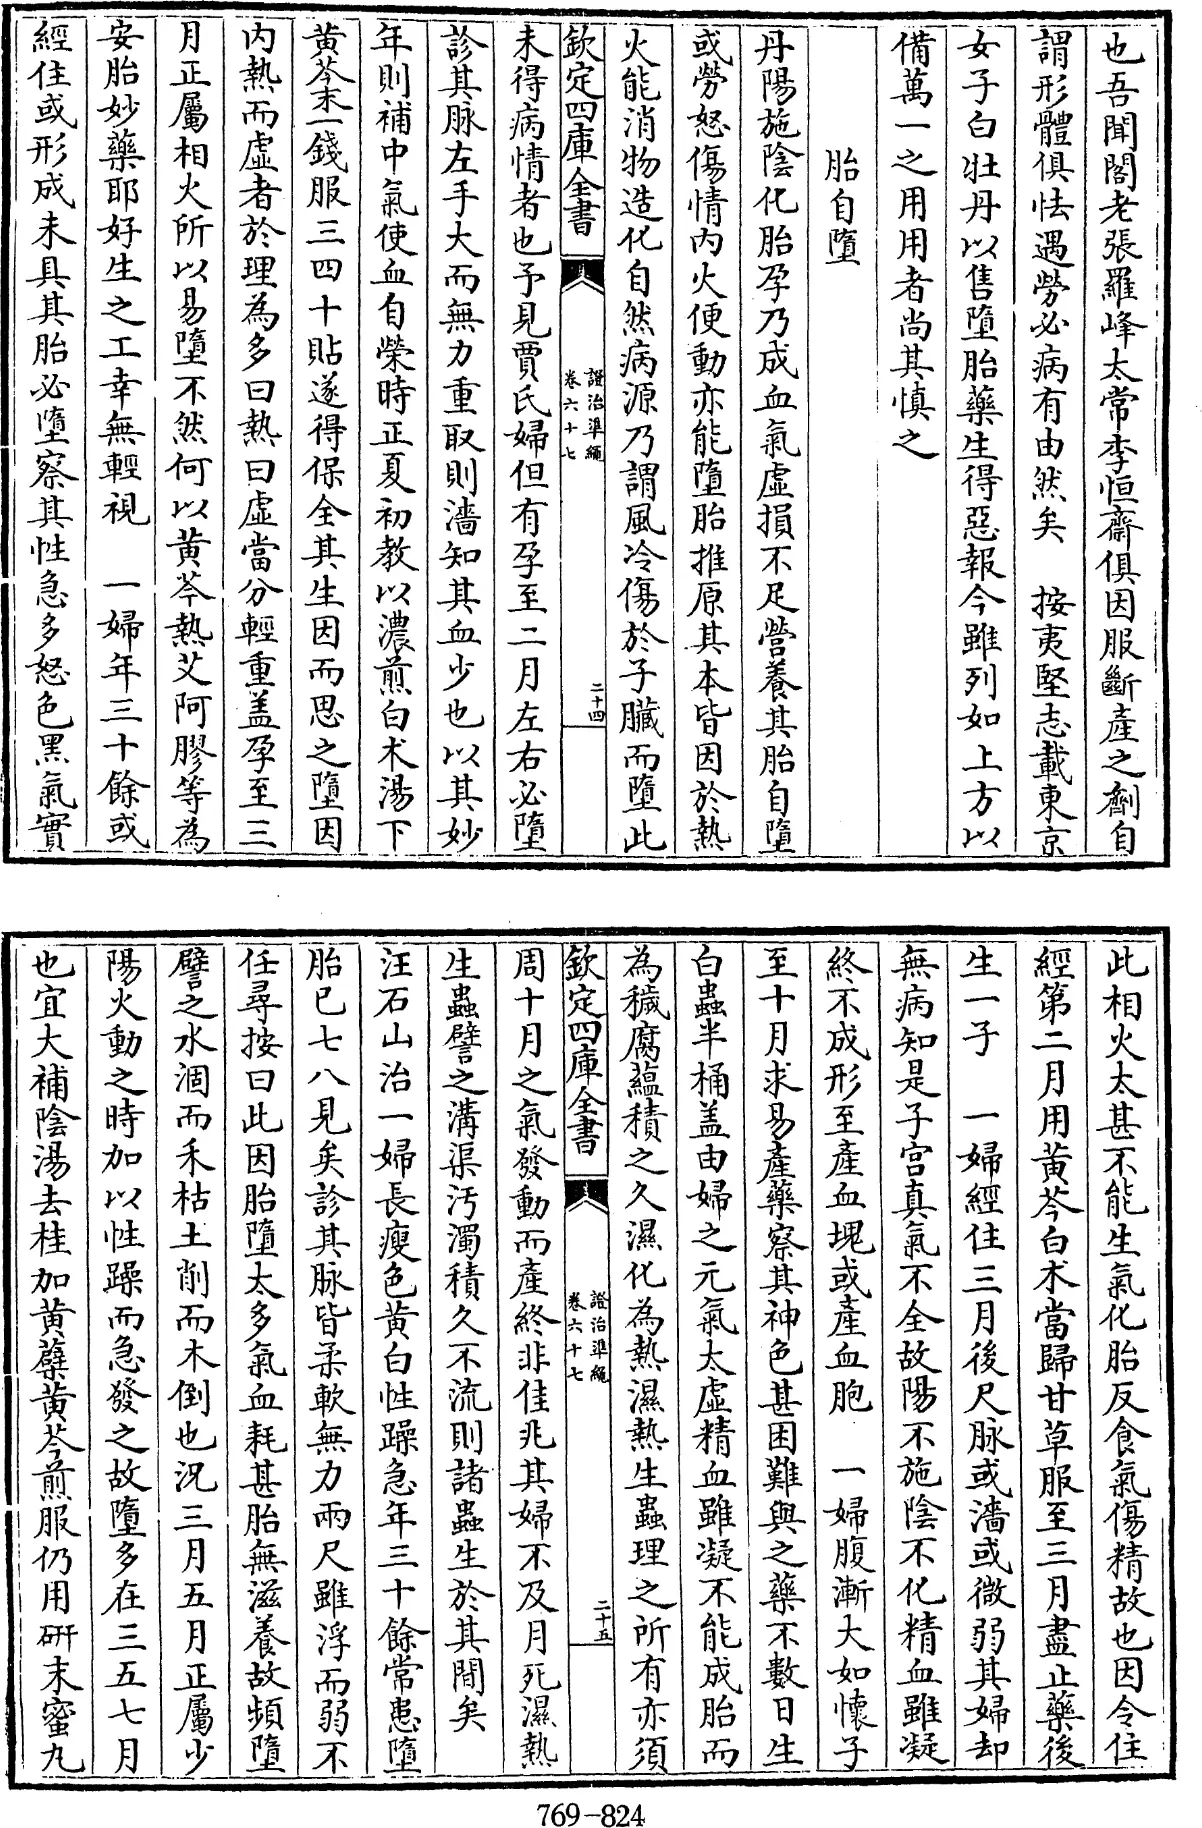 也吾聞閣老張羅峰太常李恒齋俱因服斷產之劑自
謂形體俱怯遇勞必病有由然矣　按夷堅志載東京
女子白牡丹以售墮胎藥生得惡報今雖列如上方以
備萬一之用用者尚其慎之
胎自墮
丹陽施陰化胎孕乃成血氣虛損不足營養其胎自墮
或勞怒傷情内火便動亦能墮胎推原其本皆因於熱
火能消物造化自然病源乃謂風冷傷於子臟而墮此
欽定四庫全書
證治準繩
卷六十七
二十四
未得病情者也予見賈氏婦但有孕至二月左右必墮
診其脉左手大而無力重取則濇知其血少也以其妙
年則補中氣使血自榮時正夏初教以濃煎白术湯下
黄芩末一錢服三四十貼遂得保全其生因而思之墮因
内熱而虛者於理為多曰熱曰虛當分輕重盖孕至三
月正屬相火所以易墮不然何以黄芩熱艾阿膠等為
安胎妙藥耶好生之工幸無輕視　一婦年三十餘或
經住或形成未具其胎必墮察其性急多怒色黑氣實
此相火太甚不能生氣化胎反食氣傷精故也因令住
經第二月用黄芩白术當歸甘草服至三月盡止藥後
生一子　一婦經住三月後尺脉或濇或微弱其婦却
無病知是子宮真氣不全故陽不施陰不化精血雖凝
終不成形至產血塊或產血胞　一婦腹漸大如懷子
至十月求易產藥察其神色甚困難與之藥不數日生
白蟲半桶盖由婦之元氣太虛精血雖凝不能成胎而
為穢腐蘊積之久濕化為熱濕熱生蟲理之所有亦須
欽定四庫全書
證治準繩
卷六十七
二十五
周十月之氣發動而產終非佳兆其婦不及月死濕熱
生蟲譬之溝渠汚濁積久不流則諸蟲生於其間矣
汪石山治一婦長瘦色黄白性躁急年三十餘常患墮
胎已七八見矣診其脉皆柔軟無力兩尺雖浮而弱不
任尋按曰此因胎墮太多氣血耗甚胎無滋養故頻墮
譬之水涸而禾枯土削而木倒也況三月五月正屬少
陽火動之時加以性躁而急發之故墮多在三五七月
也宜大補陰湯去桂加黄蘗黄芩煎服仍用研末蜜丸
769-824